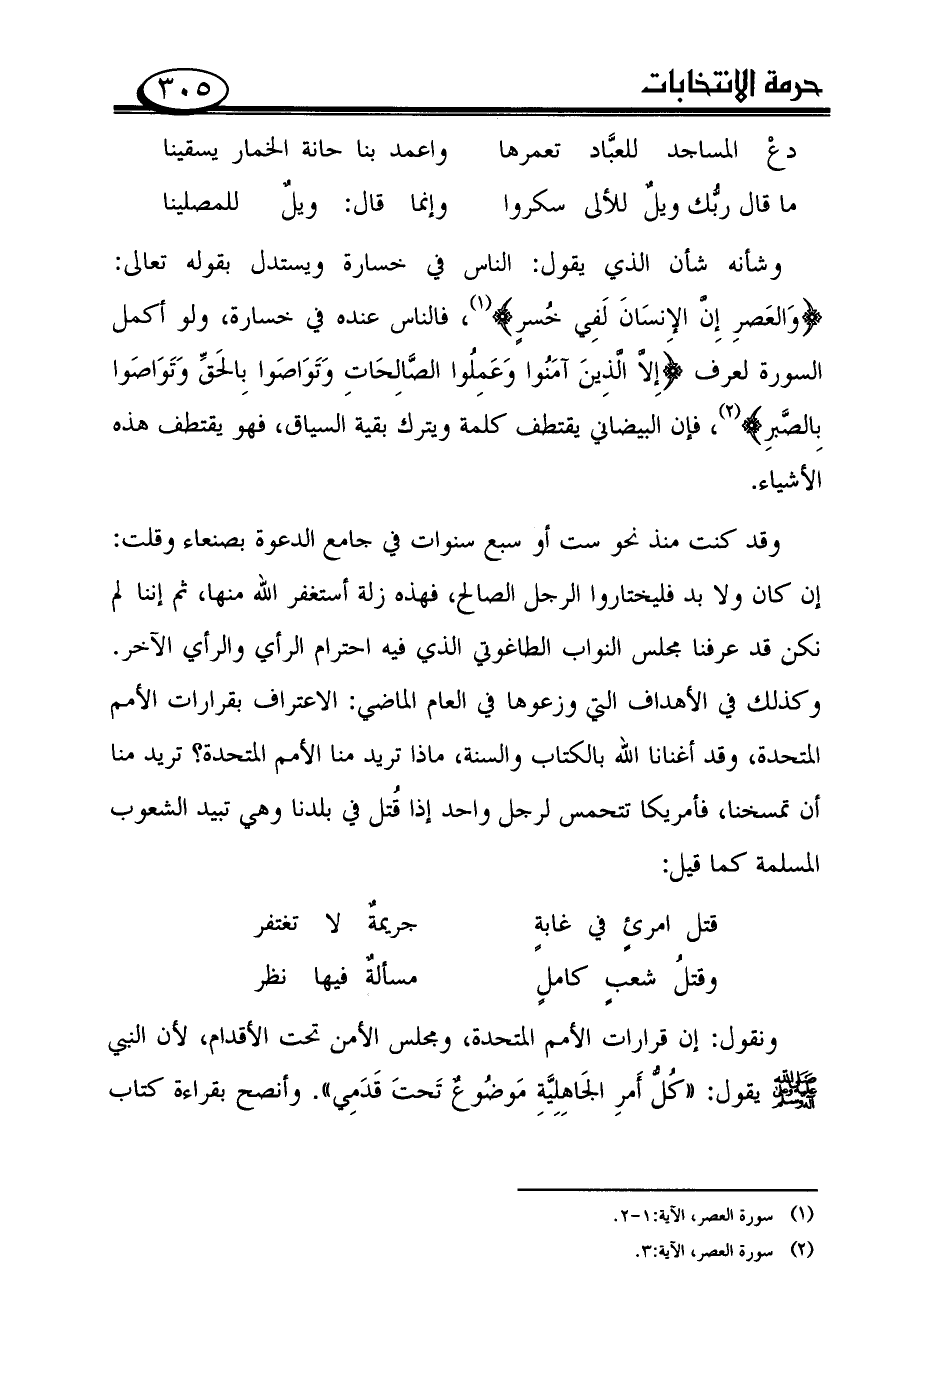 حرمة الانتخابات ٣٠٥
دعْ المساجد للعبَّاد تعمرها واعمد بنا حانة الخمار يسقينا
ما قال ربُّك ويلٌ للألى سكروا وإنما قال: ويلٌ للمصلينا
وشأنه شأن الذي يقول: الناس في خسارة ويستدل بقوله تعالى:
﴿وَالعَصرِ إِنَّ الإِنسَانَ لَفِي خُسرٍ﴾(١)، فالناس عنده في خسارة، ولو أكمل
السورة لعرف ﴿إِلاَّ الَّذِينَ آمَنُوا وَعَمِلُوا الصَّالِحَاتِ وَتَوَاصَوا بِالحَقِّ وَتَوَاصَوا
بِالصَّبرِ﴾(٢)، فإن البيضاني يقتطف كلمة ويترك بقية السياق، فهو يقتطف هذه
الأشياء.
وقد كنت منذ نحو ست أو سبع سنوات في جامع الدعوة بصنعاء وقلت:
إن كان ولا بد فليختاروا الرجل الصالح، فهذه زلة أستغفر الله منها، ثم إننا لم
نكن قد عرفنا مجلس النواب الطاغوتي الذي فيه احترام الرأي والرأي الآخر.
وكذلك في الأهداف التي وزعوها في العام الماضي: الاعتراف بقرارات الأمم
المتحدة، وقد أغنانا الله بالكتاب والسنة، ماذا تريد منا الأمم المتحدة؟ تريد منا
أن تمسخنا، فأمريكا تتحمس لرجل واحد إذا قُتل في بلدنا وهي تبيد الشعوب
المسلمة كما قيل:
قتل امرئٍ في غابةٍ جريمةٌ لا تغتفر
وقتلُ شعبٍ كاملٍ مسألةٌ فيها نظر
ونقول: إن قرارات الأمم المتحدة، ومجلس الأمن تحت الأقدام، لأن النبي
ﷺ يقول: «كُلُّ أَمرِ الجَاهِلِيَّةِ مَوضُوعٌ تَحتَ قَدَمِي». وأنصح بقراءة كتاب
(١) سورة العصر، الآية:١-٢.
(٢) سورة العصر، الآية:٣.